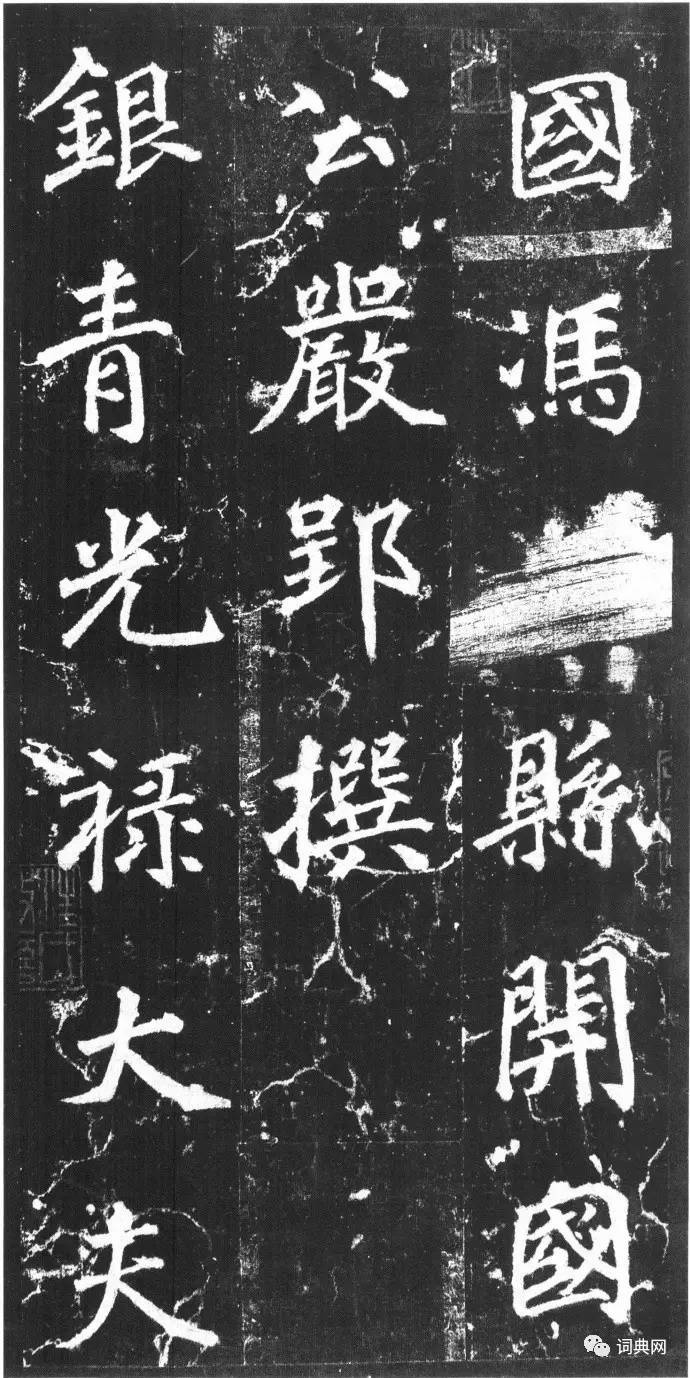 國馮縣開國
公嚴郢撰
銀青光禄大夫
词典网